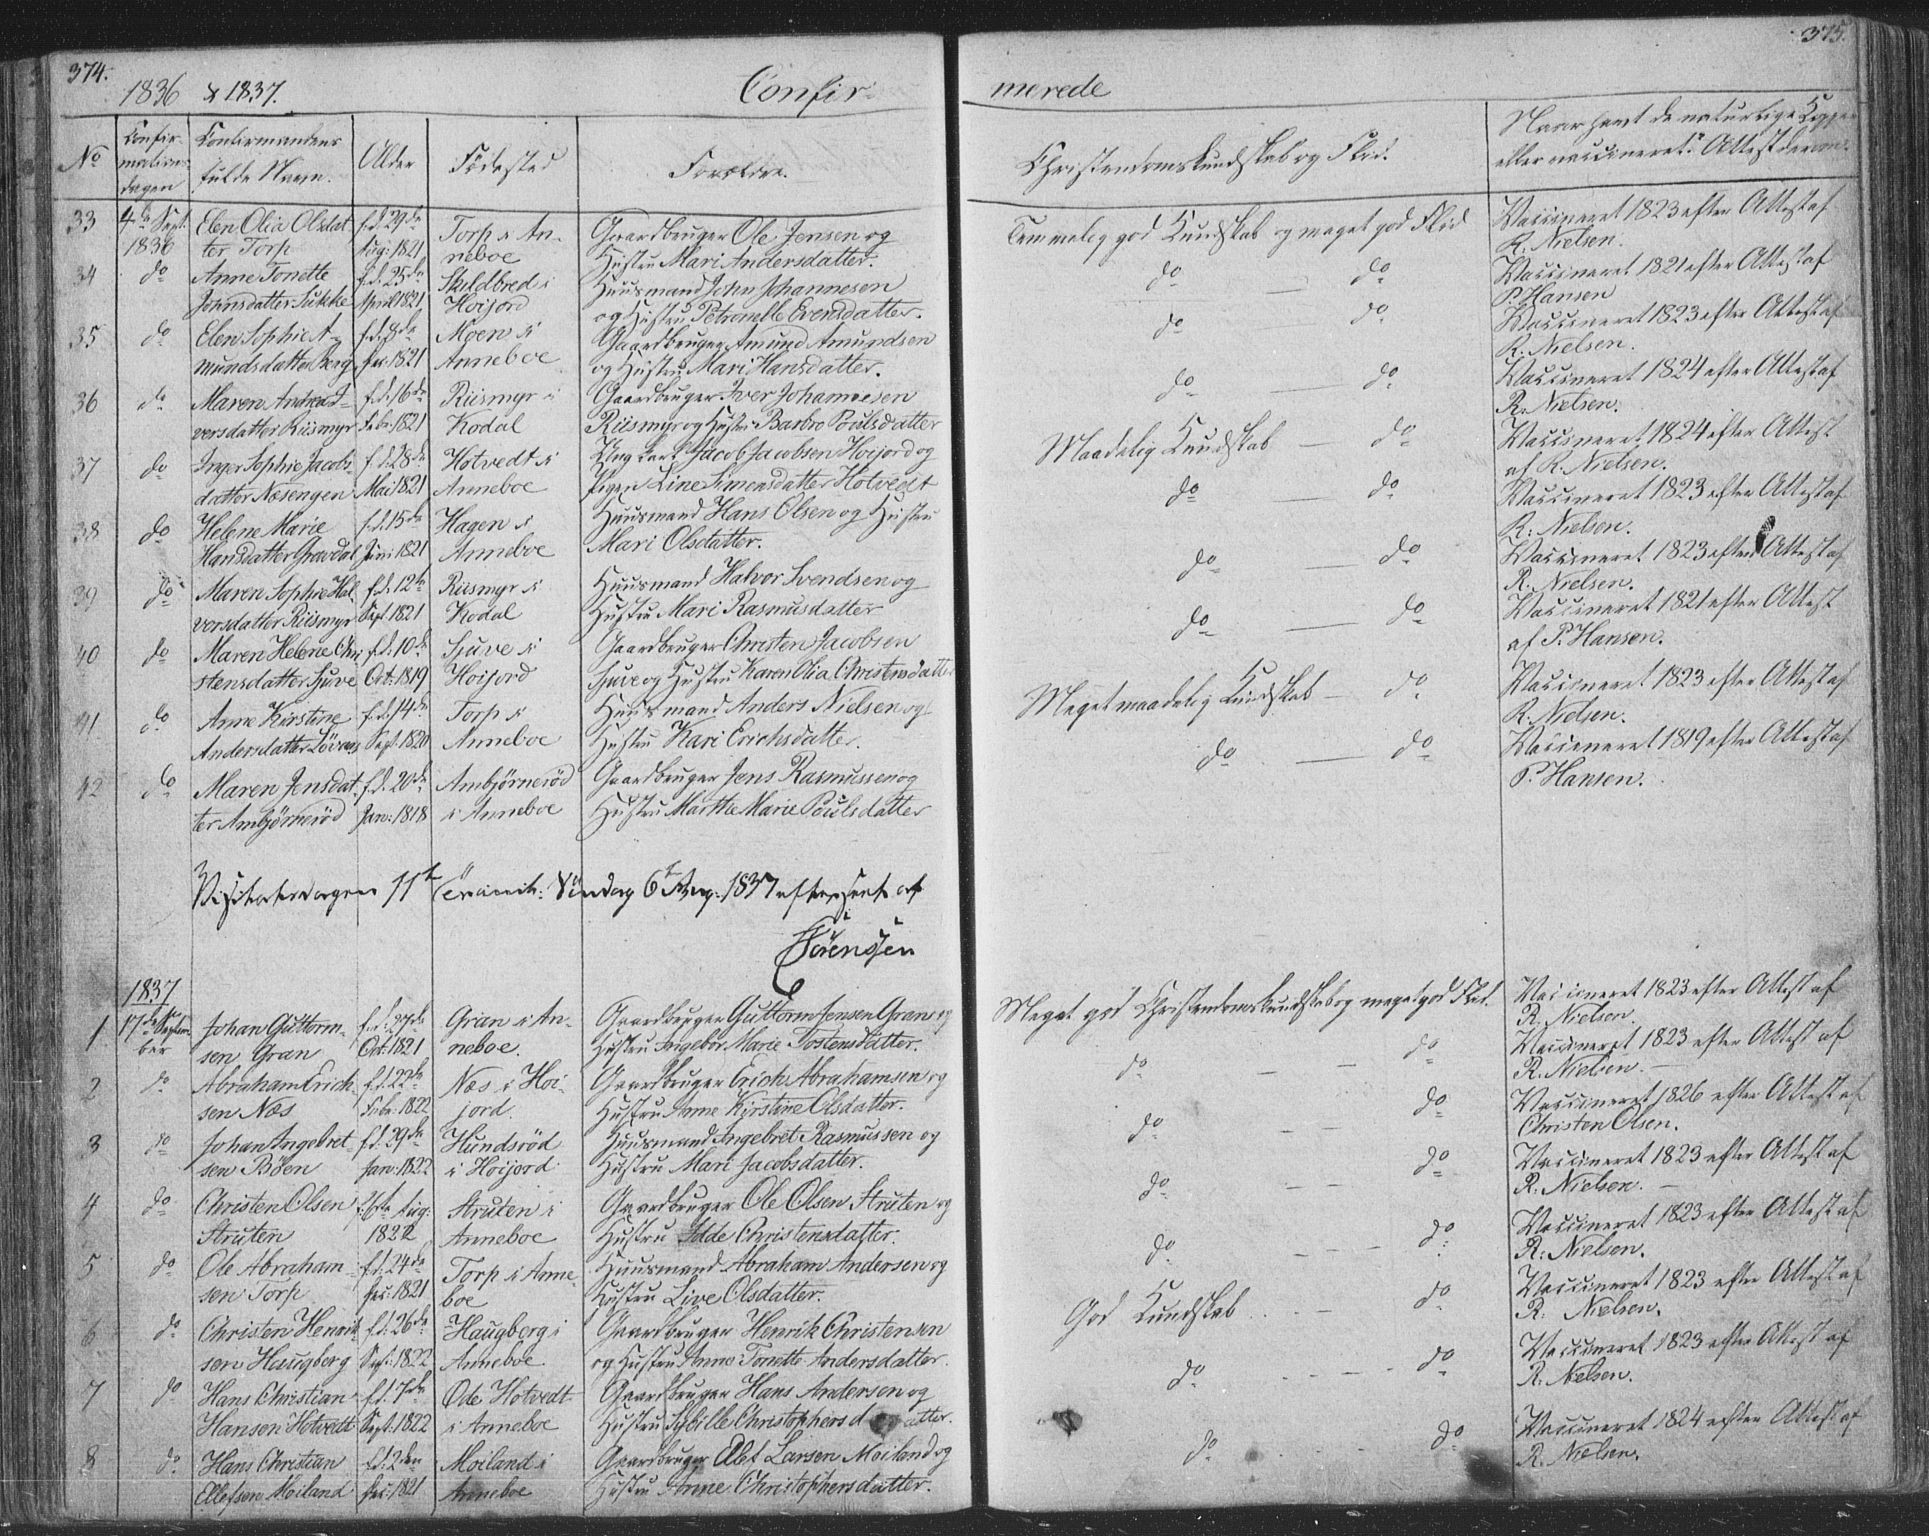 374.
1836 & 1837.
Confir-
No
Confir-
mations-
dagen
Confirmandens
fulde Navn.
Alder
Fødested
Forældre.
33
4de Sept.
1836
Elen Olia Olsdat-
ter Torp
f. d. 29de
Aug: 1821
Torp i An-
neboe
Gaardbruger Ole Jensen og
Hustru Mari Andersdatter.
34
do
Anne Tonette
Johnsdatter Sukke
f. d. 25de
April 1821
Skuldbred i
Hoijord
Huusmand John Johannesen
og Hustru Petronelle Evensdatter.
35
do
Elen Sophie A-
mundsdatter Berg
f. d. 8de
1821
Moen i
Anneboe
Gaardbruger Amund Amundsen
og Hustru Mari Hansdatter.
36
do
Maren Andrea I-
versdatter Riismyr
f. d. 16de
Febr: 1821
Riismyr i
Kodal
Gaardbruger Iver Johannesen
Riismyr og Hustru Barbro Poulsdatter
37
do
Inger Sophie Jacobs-
datter Næsengen
f. d. 28de
Mai 1821
Hotvedt i
Anneboe
Ung Karl Jacob Jacobsen Hoijord og
Pigen Line Simensdatter Hotvedt
38
do
Helene Marie
Hansdatter Gravdal
f. d. 15de
Juni 1821
Hagen i
Anneboe
Huusmand Hans Olsen og Hustru
Mari Olsdatter.
39
do
Maren Sophie Hal-
versdatter Riismyr
f. d. 12te
Sept 1821
Riismyr i
Kodal
Huusmand Halvor Svendsen og
Hustru Mari Rasmusdatter
40
do
Maren Helene Chri-
stensdatter Sjuve
f. d. 10de
Oct: 1819
Sjuve i
Hoijord
Gaardbruger Christen Jacobsen
Sjuve og Hustru Karen Olia Christensdatter
41
do
Anne Kirstine
Andersdatter Løvaas
f. d. 14de
Sept: 1820
Torp i
Anneboe
Huusmand Anders Nielsen og
Hustru Kari Erichsdatter.
42
do
Maren Jensdat-
ter Ambjørnerød
f. d. 20de
Jan: 1818
Ambjørnerød
i Anneboe
Gaardbruger Jens Rasmussen og
Hustru Marthe Marie Poulsdatter
Visitatsdagen 11te Trinit: Søndag 6te Aug: 1837 efterseet af
Sørenssen
1837
1
17de Septem-
ber
Johan Guttorm-
sen Gran
f. d. 27de
Oct: 1821
Gran i An-
neboe.
Gaardbruger Guttorm Jensen Gran og
Hustru Ingebor Marie Tostensdatter.
2
do
Abraham Erich-
sen Næs
f. d. 22de
Febr: 1822
Næs i Hoi-
jord.
Gaardbruger Erich Abrahamsen og
Hustru Anne Kirstine Olsdatter.
3
do
Johan Ingebret-
sen Bøen
f. d. 29de
Jan: 1822
Hundsrød
i Hoijord
Huusmand Ingebret Rasmussen og
Hustru Mari Jacobsdatter.
4
do
Christen Olsen
Struten
f. 6te Aug:
1822
Struten i
Anneboe
Gaardbruger Ole Olsen Struten og
Hustru Idde Christensdatter.
5
do
Ole Abraham-
sen Torp
f. d. 24de
1821
Torp i Anne-
boe
Huusmand Abraham Andersen og
Hustru Live Olsdatter.
6
do
Christen Henrik-
sen Haugberg
f. d. 26de
Sept: 1822
Haugberg i
Anneboe
Gaardbruger Henrik Christensen
og Hustru Anne Tonette Andersdatter.
7
do
Hans Christian
Hansen Hotvedt
f. d. 7de
Sept: 1822
Øde Hotvedt
i Anneboe
Gaardbruger Hans Andersen og
Hustru Sibille Christophersdatter.
8
do
Hans Christian
Ellefsen Moiland
f. d. 2den
1821
Moiland i
Anneboe
Gaardbruger Elef Larsen Moiland og
Hustru Anne Christophersdatter.
375.
merede
Christendomskundskab og Flid.
Naar havt de naturlige Kopper
eller vaccineret. Attest derom.
Temmelig god Kundskab og meget god Flid
Vaccineret 1823 efter Attest af
R. Nielsen.
do — do
Vaccineret 1821 efter Attest af
P. Hansen
do — do
Vaccineret 1823 efter Attest af
R. Nielsen.
do — do
Vaccineret 1824 efter Attest af
R. Nielsen.
Maadelig Kundskab — do
Vaccineret 1824 efter Attest
af R. Nielsen.
do — do
Vaccineret 1823 efter Attest af
R. Nielsen.
do — do
Vaccineret 1823 efter Attest af
R. Nielsen.
do — do
Vaccineret 1821 efter Attest
af P. Hansen.
Meget maadelig Kundskab — do
Vaccineret 1823 efter Attest af
R. Nielsen.
do — do
Vaccineret 1819 efter Attest af
P. Hansen.
Meget god Christendomskundskab og meget god Flid.
Vaccineret 1823 efter Attest af
R. Nielsen.
do — — do
Vaccineret 1823 efter Attest af
R. Nielsen. —
do — — do
Vaccineret 1826 efter Attest af
Christen Olsen.
do — — do
Vaccineret 1823 efter Attest af
R. Nielsen. —
do — — — do
Vaccineret 1823 efter Attest af
R. Nielsen.
God Kundskab — do
Vaccineret 1823 efter Attest af
R. Nielsen.
do — do
Vaccineret 1823 efter Attest af
R. Nielsen.
do — do
Vaccineret 1824 efter Attest af
R. Nielsen.